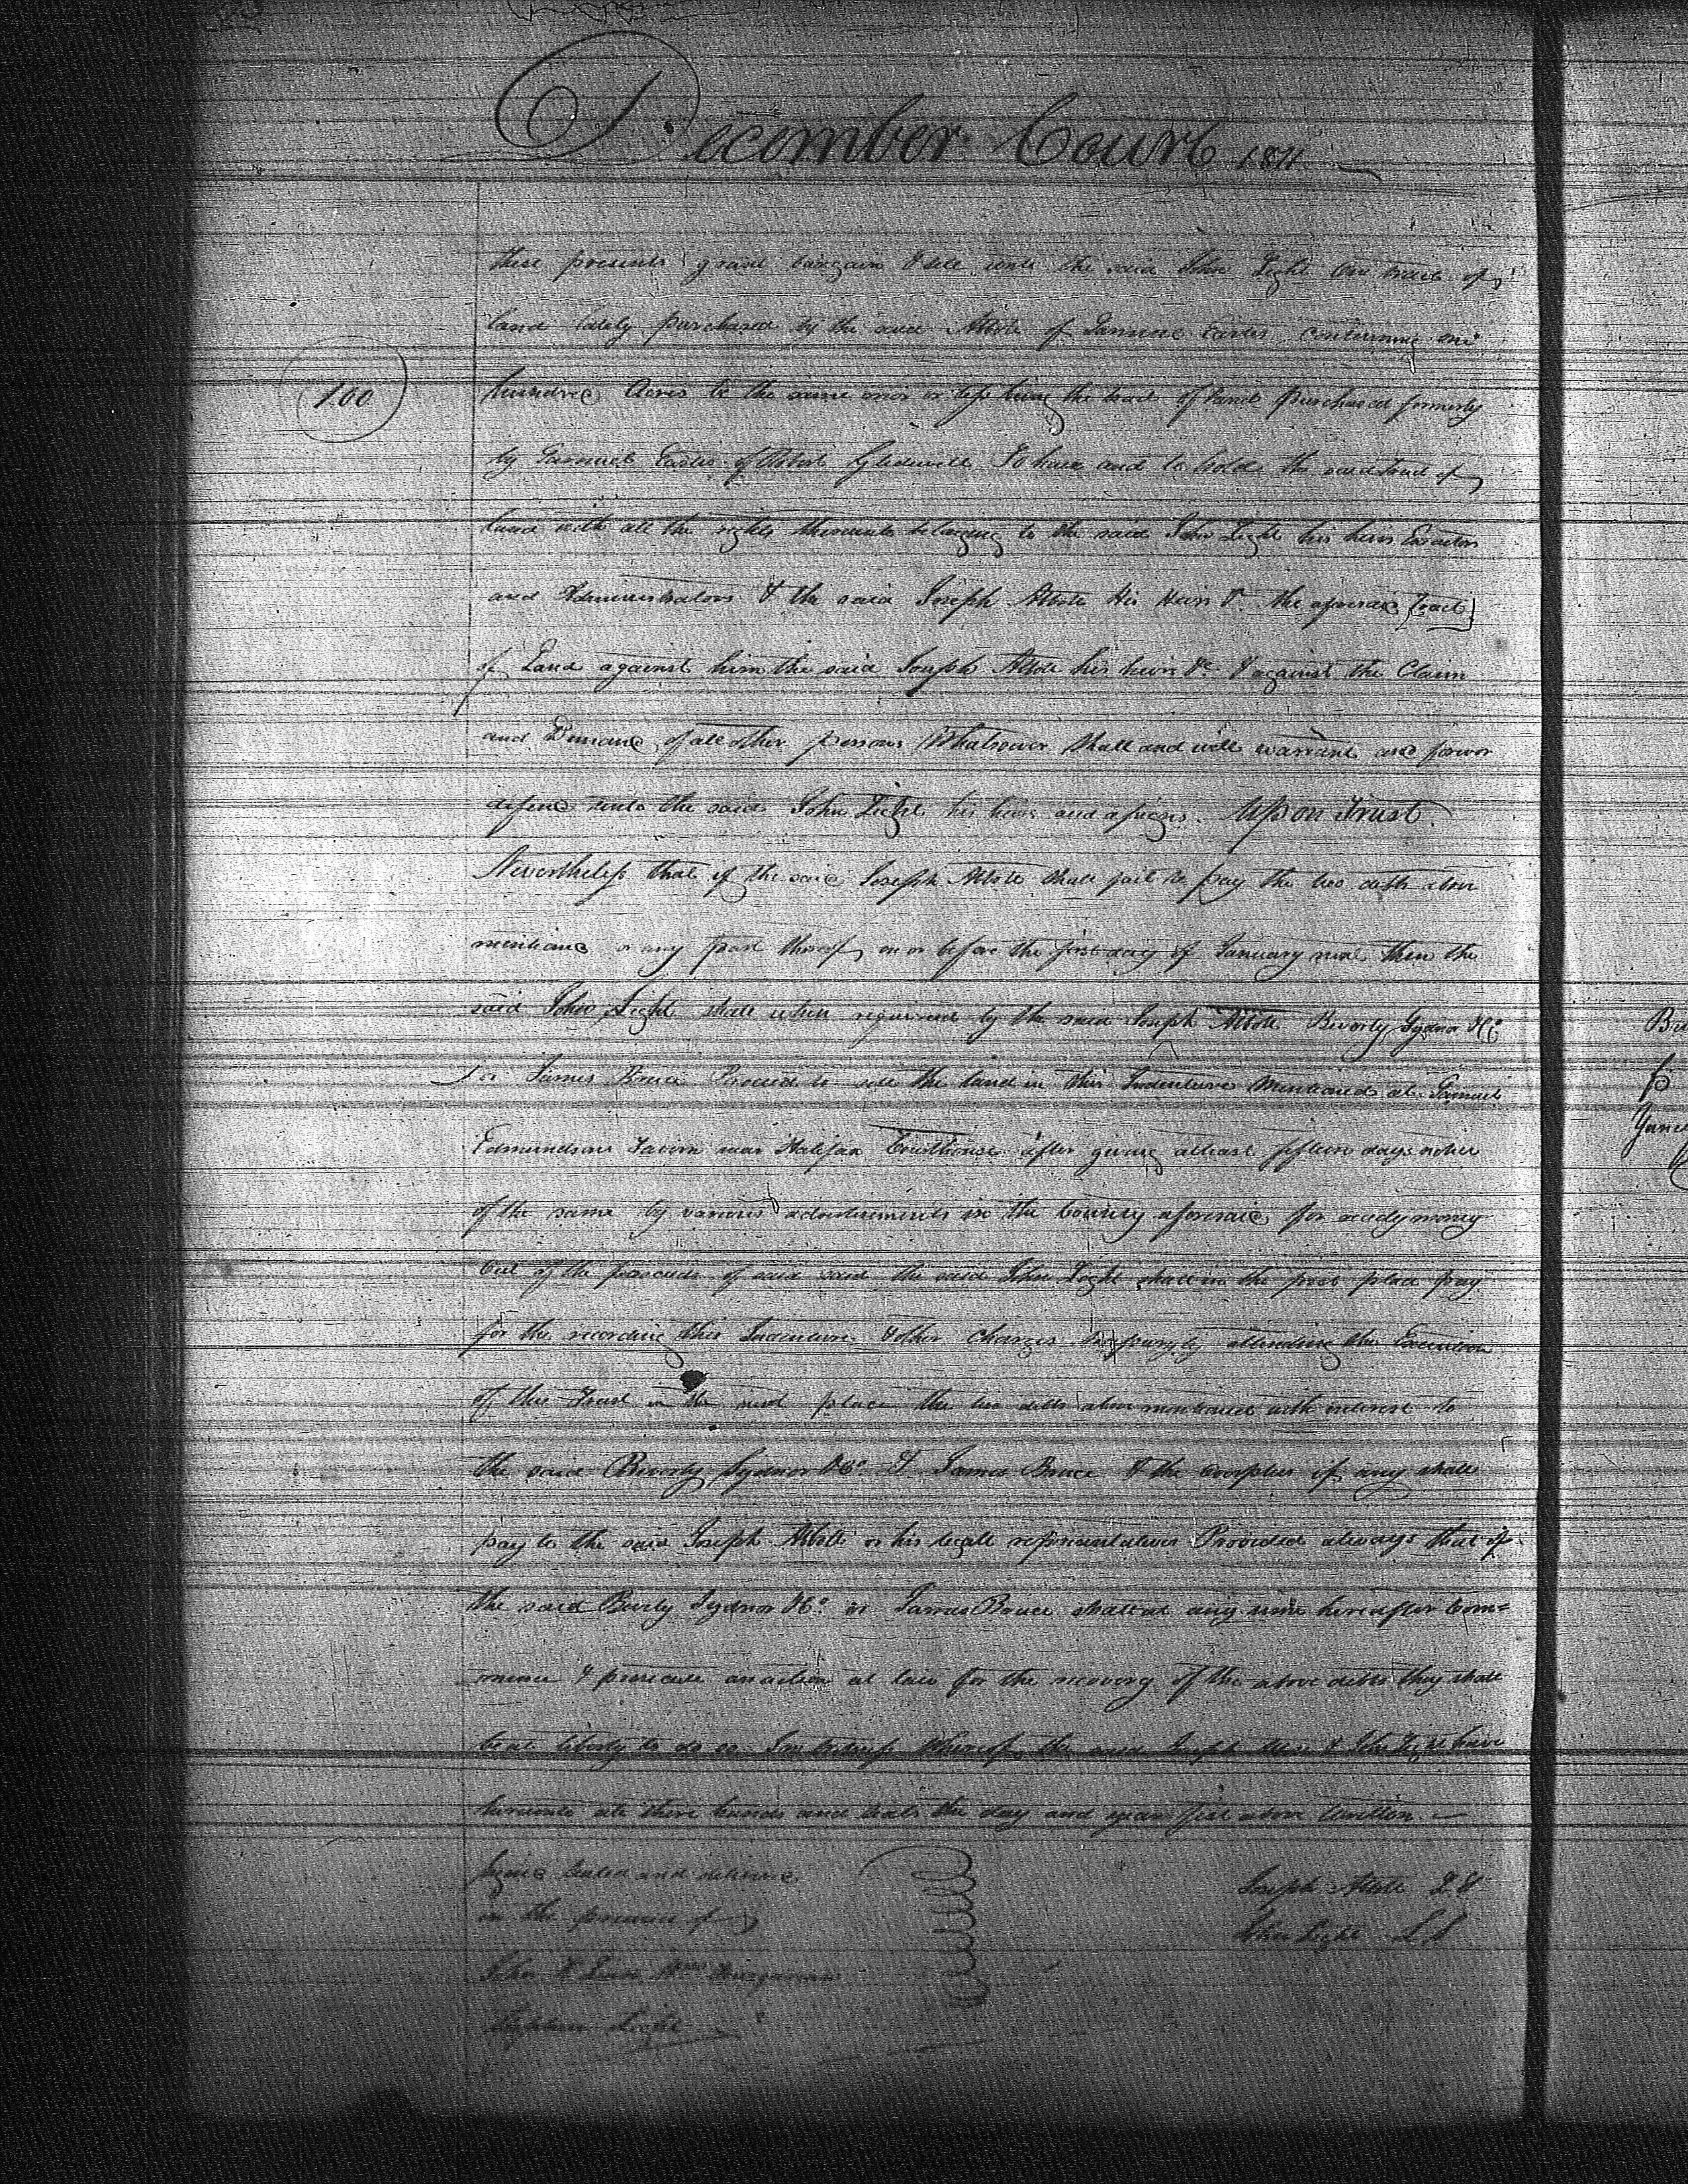 December Court 1811
these presents grant bargain & sell unto the said John Light One tract of
land lately purchased by the said Abbott of Samuel Eastes containing one
100
hundred Acres be the same more or less being the tract of land purchased formerly
by Samuel Eastes of Robert Gledewell To have and to hold the said tract of
land with all the rights thereunto belonging to the said John Light his heirs Executors
and Administrators & the said Joseph Abbott His Heirs &c. the aforesaid tract
of Land against him the said Joseph Abbott his heirs &c. & against the Claim
and Demand of all other persons Whatsoever Shall and will warrant and forever
defend unto the said John Light his heirs and assigns. Upon Trust.
Nevertheless that if the said Joseph Abbott shall fail to pay the two debts above
mentioned or any part thereof on or before the first day of January next then the
said John Light shall when required by the said Joseph Abbott Beverly Sydnor &Co
or James Bruce Proceed to sell the land in this Indenture Mentioned at Samuel
Edmundsons Tavern near Halifax Courthouse after giving atleast fifteen days notice
of the same by various advertisements in the County aforesaid for ready money
Out of the proceeds of said the said John Light shall in the first place pay
for the recording this Indenture & other Charges attending the Execution
of this Trust in the next place the two debts above mentioned with interest to
the said Beverly Sydnor &Co. & James Bruce & the overplus if any shall
pay to the said Joseph Abbott or his legall representatives Provided always that if
the said Beverly Sydnor &Co. or James Bruce shall at any time hereafter Com=
mence & prosecute an action at law for the recovery of the above debts they shall
be at liberty to do so In Witness Whereof the said Joseph & John Light have
hereunto set there hands and seals the day and year first above Written.
Signed Sealed and delivered
in the presence of
Joseph Abbott LS
John Light LS
John Wm
Stephen Light